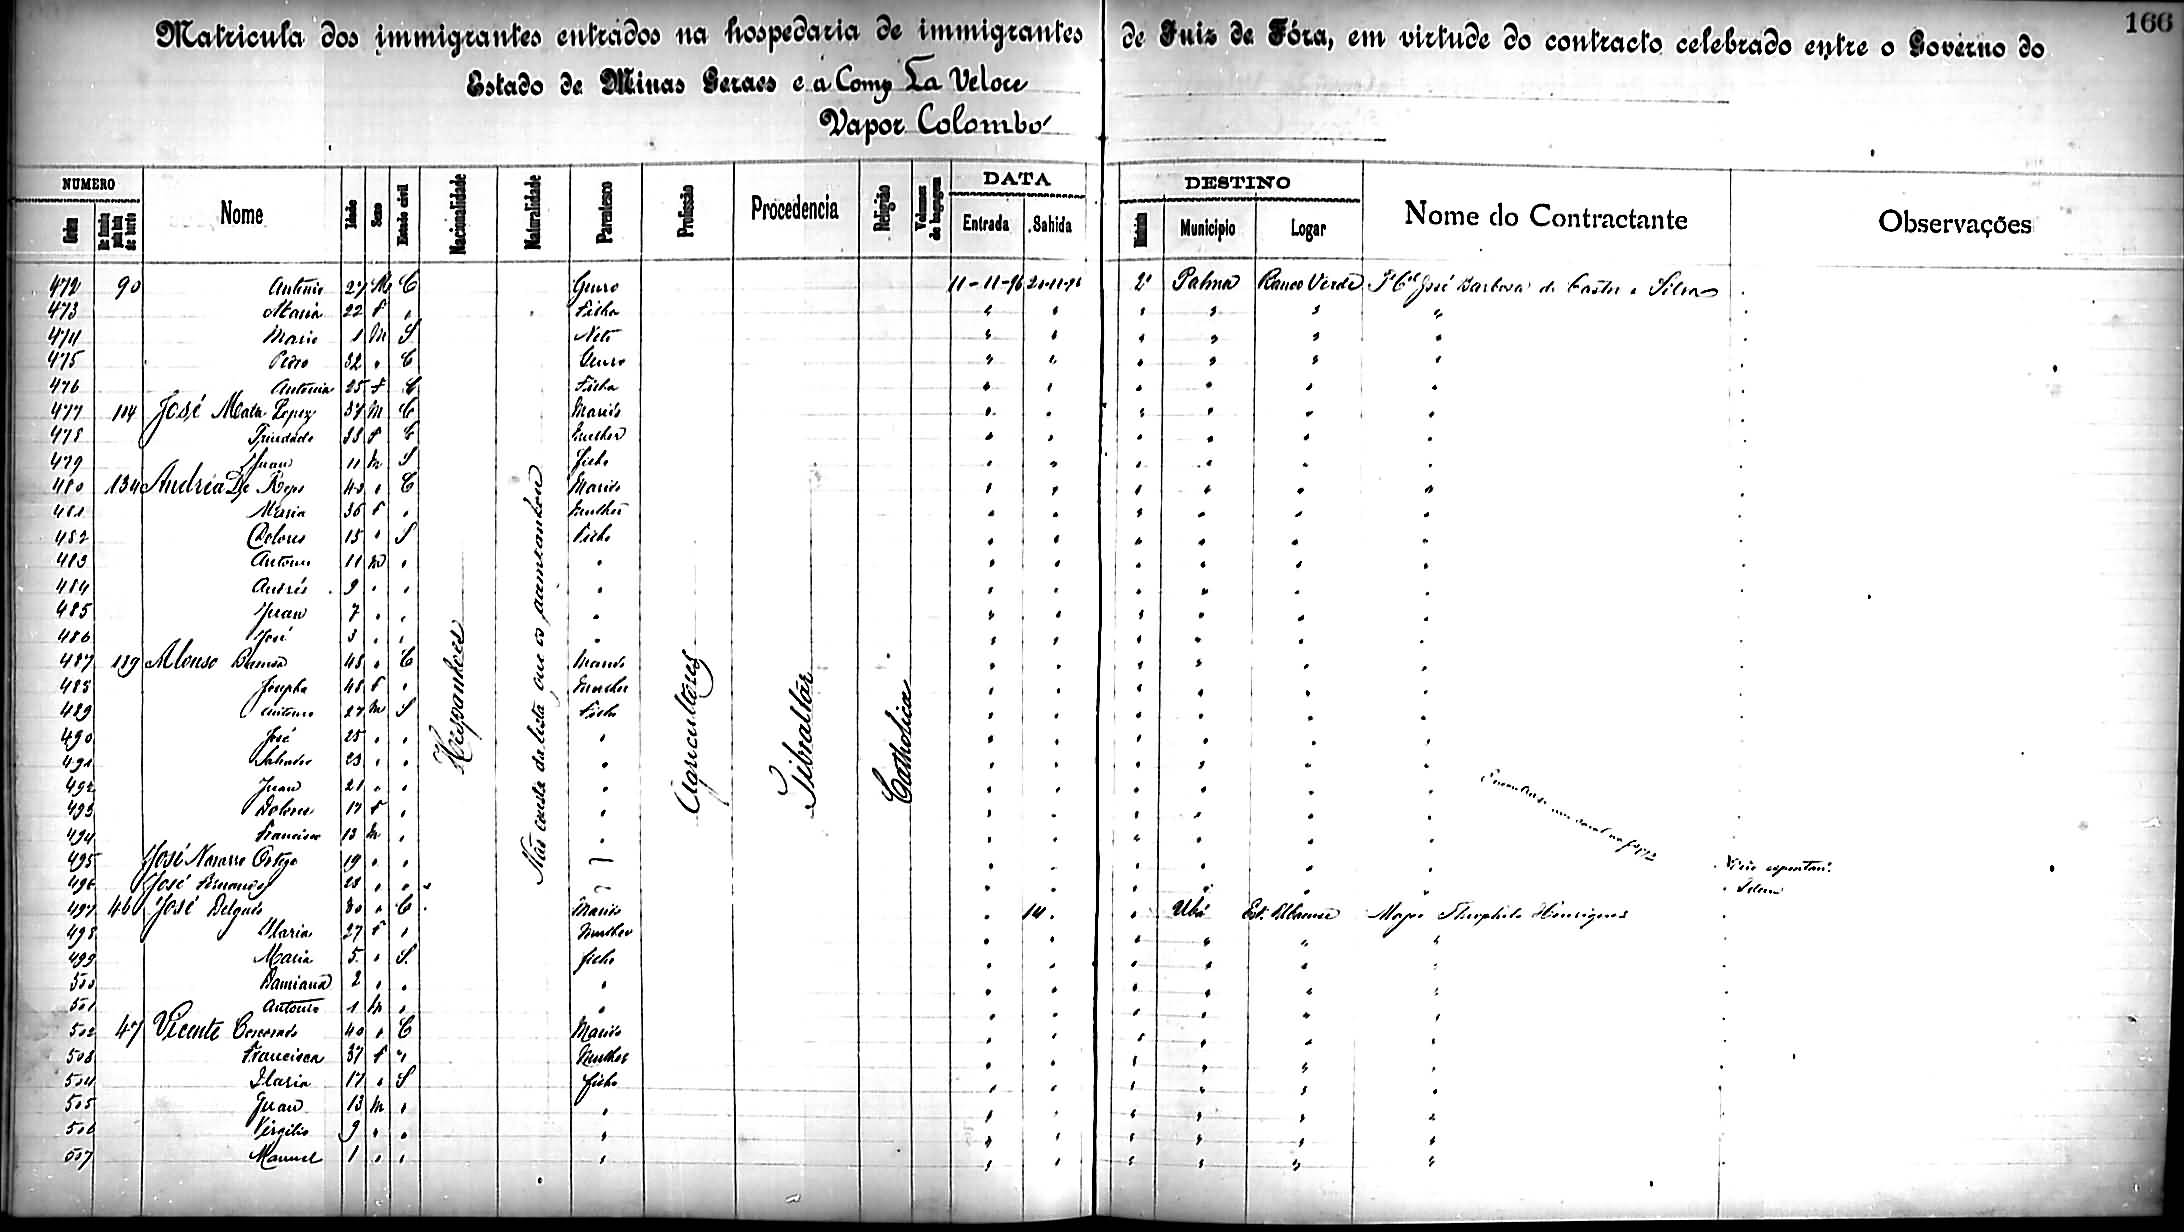 166
Matricula dos immigrantes entrados na hospedaria de immigrantes de Juiz de Fóra, em virtude do contracto celebrado entre o Governo do
Estado de Minas Geraes e a Comp La Veloce
Vapor Colombo
NUMERO Nome Idade Sexo Estado civil Nacionalidade Naturalidade Parentesco Profissão Procedencia Religião Volumes de bagagem DATA DESTINO Nome do Contractante Observações
Ordem Entrada Sahida Districto Municipio Logar
Hispanhoes
Não consta da lista que os acompanhou
Agricultores
Gibraltar
Catholica
472 90 Antonio 27 M C Genro 11-11-96 21-11-96 2º Palma Banco Verde José Barbosa de Castro e Silva
473 Maria 22 F " Filha " " " " " "
474 Mario 1 M S Neto " " " " " "
475 Pedro 32 " C Genro " " " " " "
476 Antonia 25 F C Filha " " " " " "
477 114 José Mata Lopez 37 M C Marido " " " " " "
478 Trindade 33 F C Mulher " " " " " "
479 Juan 11 M S Filho " " " " " "
480 134 Andréa De Reps 43 " C Marido " " " " " "
481 Maria 36 F " Mulher " " " " " "
482 Dolores 15 " S Filho " " " " " "
483 Antonio 11 M " " " " " " " "
484 Andrés 9 " " " " " " " " "
485 Juan 7 " " " " " " " " "
486 José 3 " " " " " " " " "
487 139 Alonso 48 " C Marido " " " " " "
488 Josepha 48 F " Mulher " " " " " "
489 Antonio 27 M S Filho " " " " " "
490 José 25 " " " " " " " " "
491 Salvador 23 " " " " " " " " "
492 Juan 21 " " " " " " " " "
493 Dolores 17 F " " " " " " " "
494 Francisco 13 M " " " " " " " "
495 José Navarro Ortega 19 " " " " " " " " Veio espontan.
496 José Fernandes 28 " " " " " " " " Idem
497 46 José Delgado 30 " C Marido " 14 " " Ubá Est. Major Theophilo Henriques
498 Maria 27 F " Mulher " " " " " "
499 Maria 5 " S Filho " " " " " "
500 Damiana 2 " " " " " " " " "
501 Antonio 1 M " " " " " " " "
502 47 Vicente 40 " C Marido " " " " " "
503 Francisca 37 F " Mulher " " " " " "
504 Maria 17 " S Filho " " " " " "
505 Juan 13 M " " " " " " " "
506 Virgilio 9 " " " " " " " " "
507 Manuel 1 " " " " " " " " "